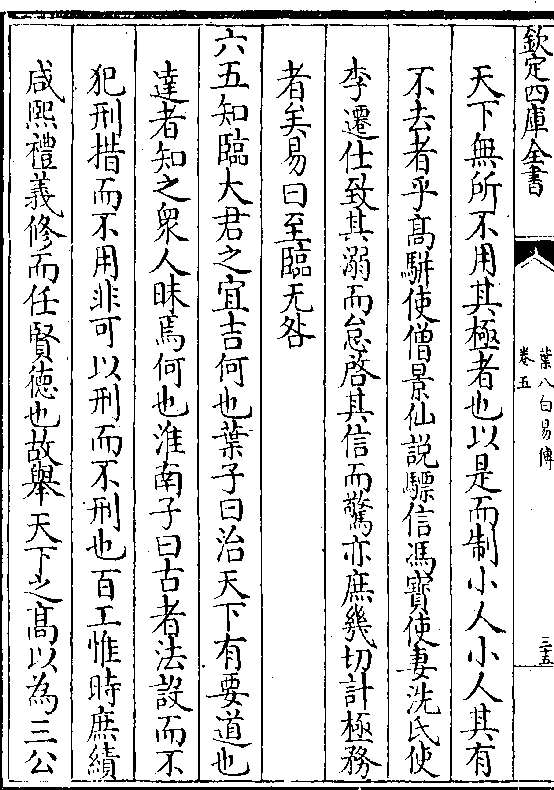 欽定四庫全書
葉八白易傳
卷五
三五
天下無所不用其極者也以是而制小人小人其有
不去者乎髙駢使僧景仙説驃信馮寳使妻洗氏使
李遷仕致其溺而怠啓其信而驚亦庶幾切計極務
者矣易曰至臨无咎
六五知臨大君之宜吉何也葉子曰治天下有要道也
達者知之衆人昧焉何也淮南子曰古者法設而不
犯刑措而不用非可以刑而不刑也百工惟時庶績
咸熙禮義修而任賢徳也故舉天下之髙以為三公